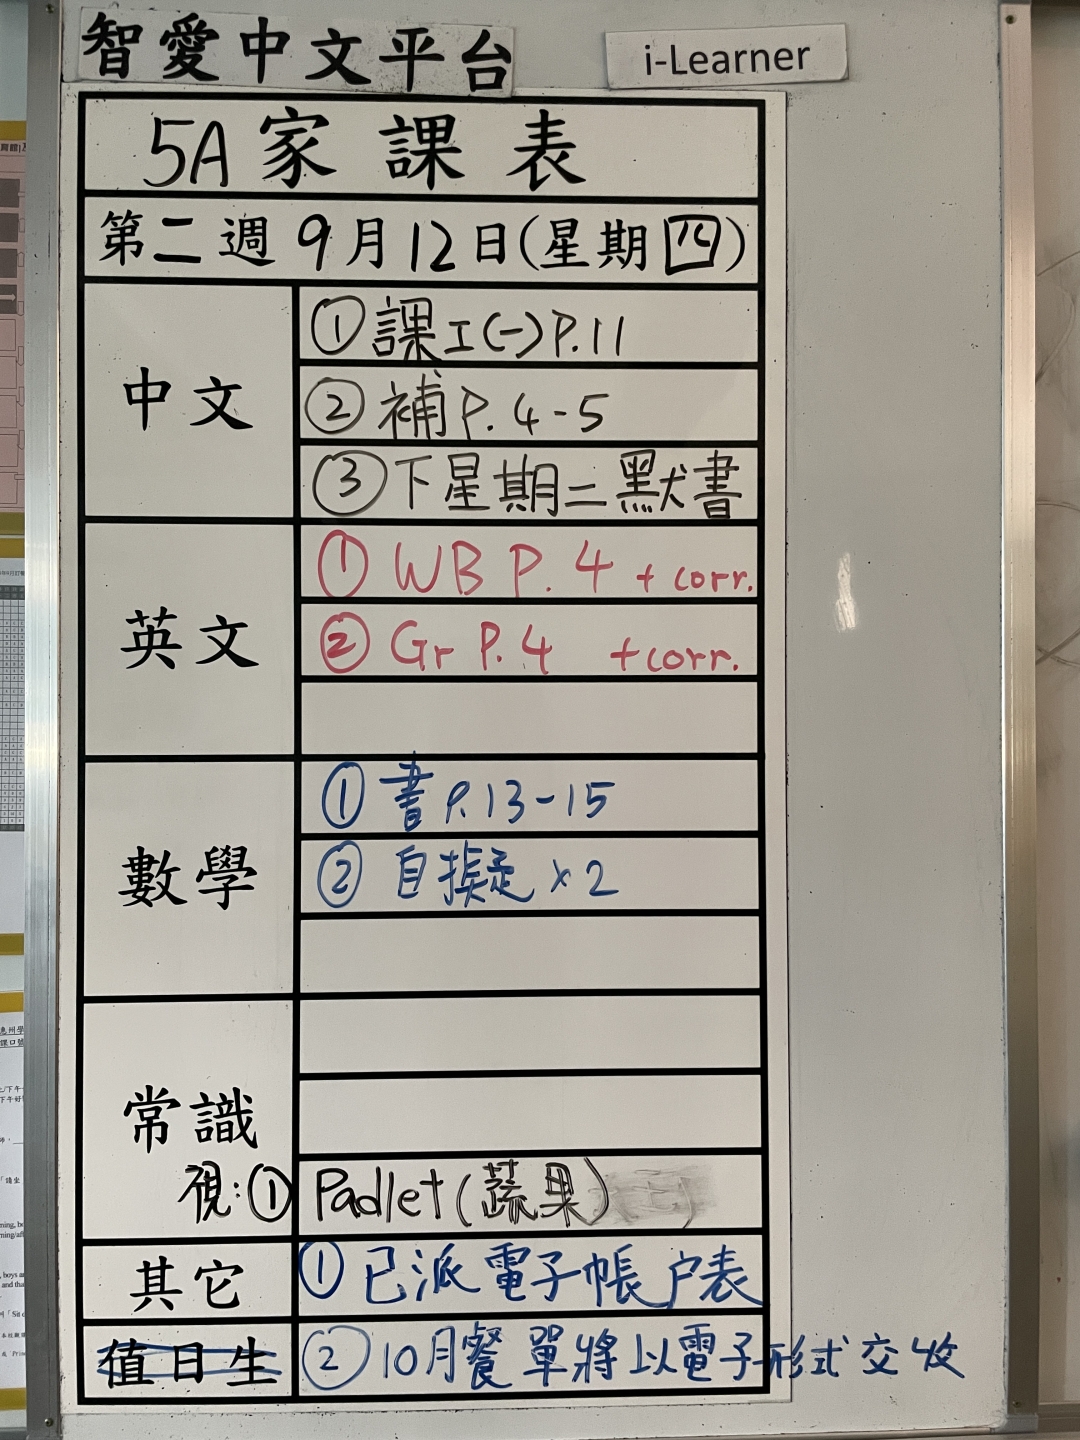 智愛中文平台
i-Learner
5A家課表
第二週9月12日(星期四)
中文
①課工(一)P.11
②補P.4-5
③下星期二默書
英文
①WB P.4 + corr.
②Gr P.4 +corr.
數學
①書P.13-15
②自擬x2
常識
視:①Padlet(蔬果)
其它
①已派電子帳户表
值日生
②10月餐單將以電子形式交收